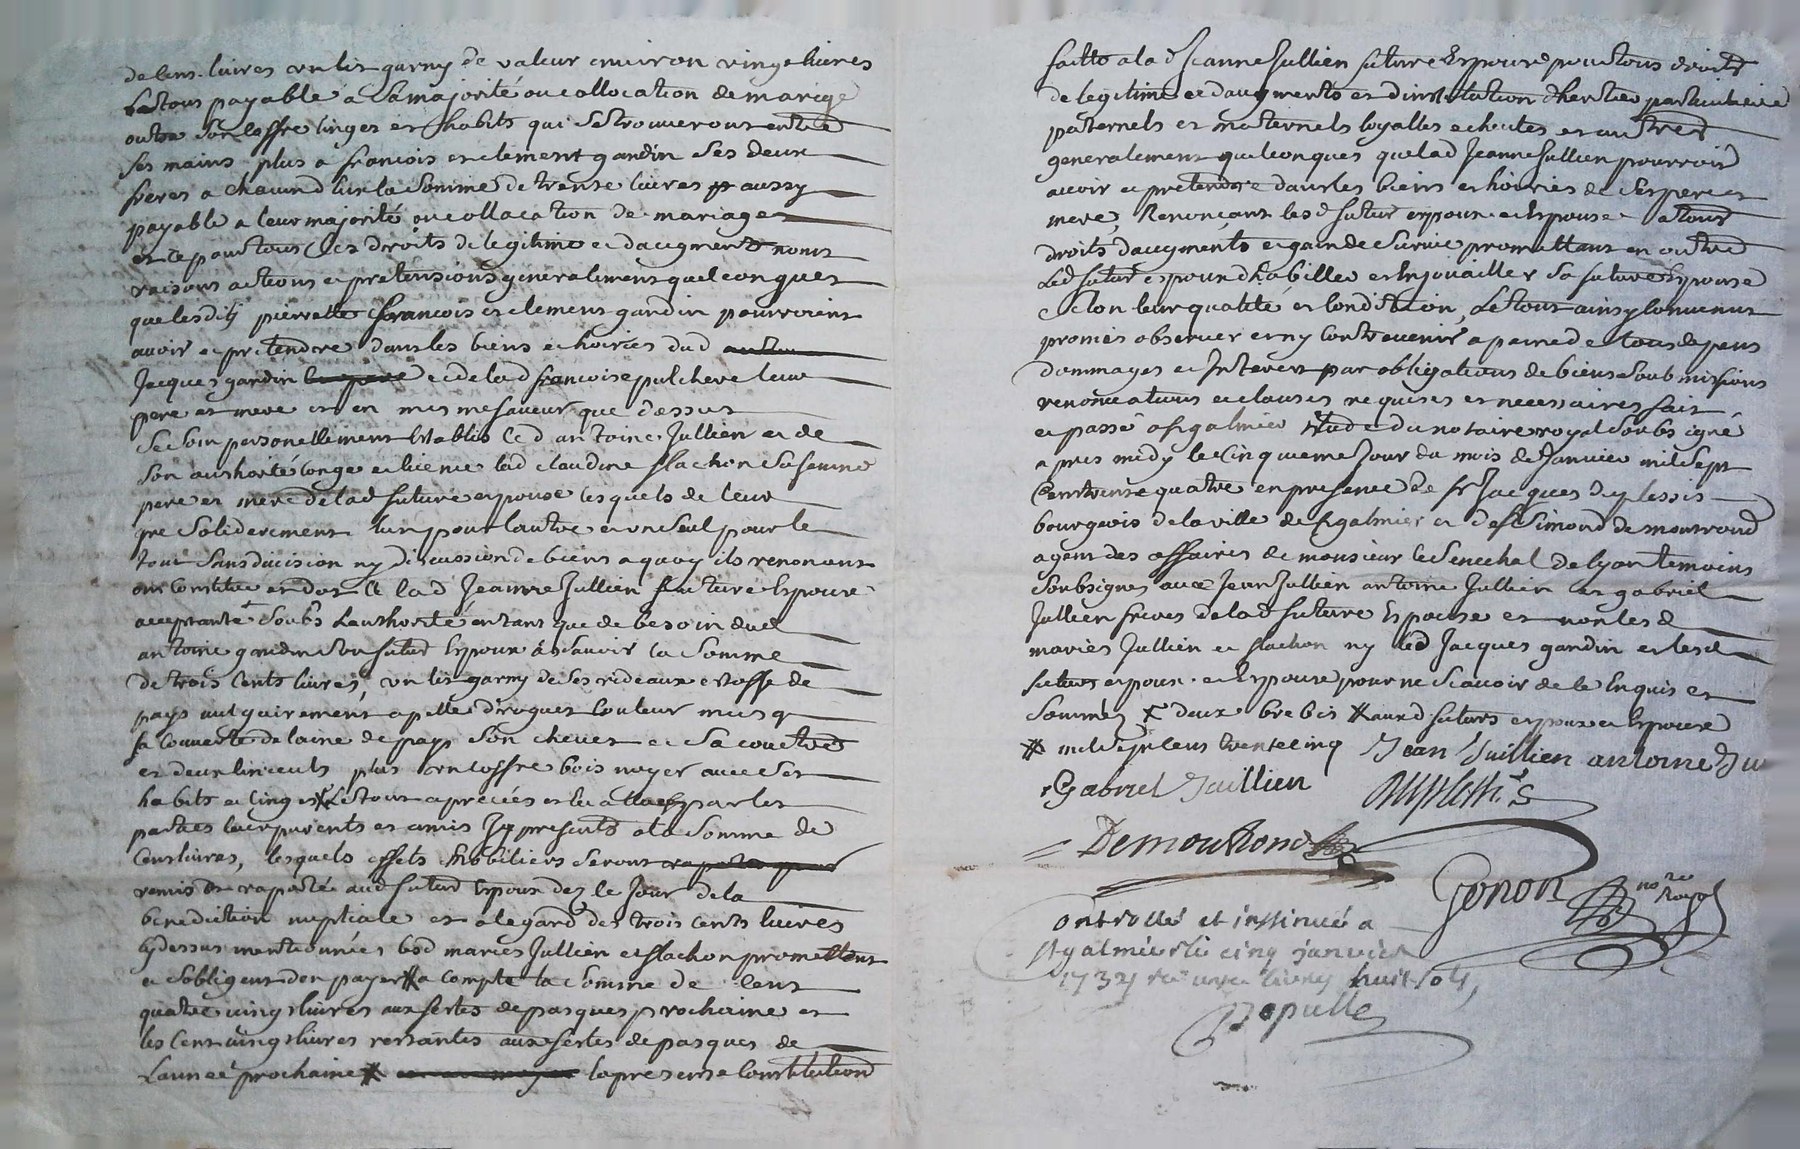 de cens livres un lit garny de valeur environ vingt livres
le tout payable a sa majorité ou collocation de mariage
outre son coffre linges et habits qui se trouveront entre
ses mains plus a francois et clement gandin ses deux
freres a chacund d'iux la somme de trente livres aussy
payable a leur majorité ou collocation de mariage et
et ce pour tous les droits de legitime et daugments noms
raisons actions et pretensions generalement quelconques
que lesdits pierrette francois et clement gandin pourroient
avoir et pretendre dans les biens et hoiries dud
Jacques gandin et de lad francoise pulchere leur
pere et mere et en mesme faveur que dessus
se son personellement establis led antoine Jullien et de
son authorité conge et licence lad claudine flachon sa femme
pere et mere de lad future espouse lesquels de leur
gre soliderement lun pour lautre et un seul pour le
tout sans division ny discussion de biens a quoy ils renoncent
ont constitue en dot a lad Jeanne Jullien future Espouse
acceptante soubs lauthorité en tant que de besoin dud
antoine gandin son futur Espoux a scavoir la somme
de trois cents livres, un lit garny de ses rideaux etoffe de
pays vulguairement apellé drogues couleur musq
sa couverte de laine de pays son chevet et sa couettre
et deux linceuls plus un coffre bois noyer avec ses
habits et linges le tout apreciés et evalués par les
parties leurs parents et amis Jcy presents a la somme de
cens livres, lesquels effets mobiliers seront
remis et raporté aud futur Espoux dez le Jour de la
benediction nuptiale et a legard des trois cents livres
cy dessus mentionnées lesd mariés Jullien et flachon promettent
et sobligent den payer a compte la somme de cent
quatre vingt livres aux festes de pasques prochaine et
les cent vingt livres restantes aux festes de pasques de
lannee prochaine la presente Constitution
faitte a lad Jeanne Jullien future Espouse pour tous droits
de legitime et daugments et dinstitution dheritiere particuliere
paternels et maternels loyalles echeutes et autres
generalement quelconques que lad Jeanne Jullien pourroit
avoir et pretendre dans les biens et hoiries de ses pere et
mere, Renonçant lesd futur espoux et Espouse a tous
droits daugments et gain de survie promettant en outre
led futur espoux d'habiller et Enjouailler sa future Espouse
selon leur qualité et Condition, Le tout ainsy Convenus
promis observer et ny Contrevenir a peine de tous depens
dommages et Interest par obligations de biens soubmissions
renonciations et clauses requises et necessaires fait
et passé a st galmier etude du notaire royal soubsigné
apres midy le cinquieme Jour du mois de Janvier mil sept
cent trente quatre en presence de sr Jacques duplessis
bourgeois de la ville de st galmier et de sr Simond de montrond
agent des affaires de monsieur le Senechal de lyon temoins
soubsignes avec Jean Jullien antoine Jullien et gabriel
Jullien freres de lad future Espouse et non lesd
mariés Jullien et flachon ny led Jacques gandin et lesd
futurs espoux et Espouse pour ne scavoir de ce Enquis et
sommés deux brebis aux d futurs espoux et Espouse
mil sept cent trente cinq Jean Juillien antoine Ju
Gabriel Juillien Duplessis
Demontrond
Genon no re Royal
ontrollé et insinué a
st galmier le cinq janvier
livres huit sols